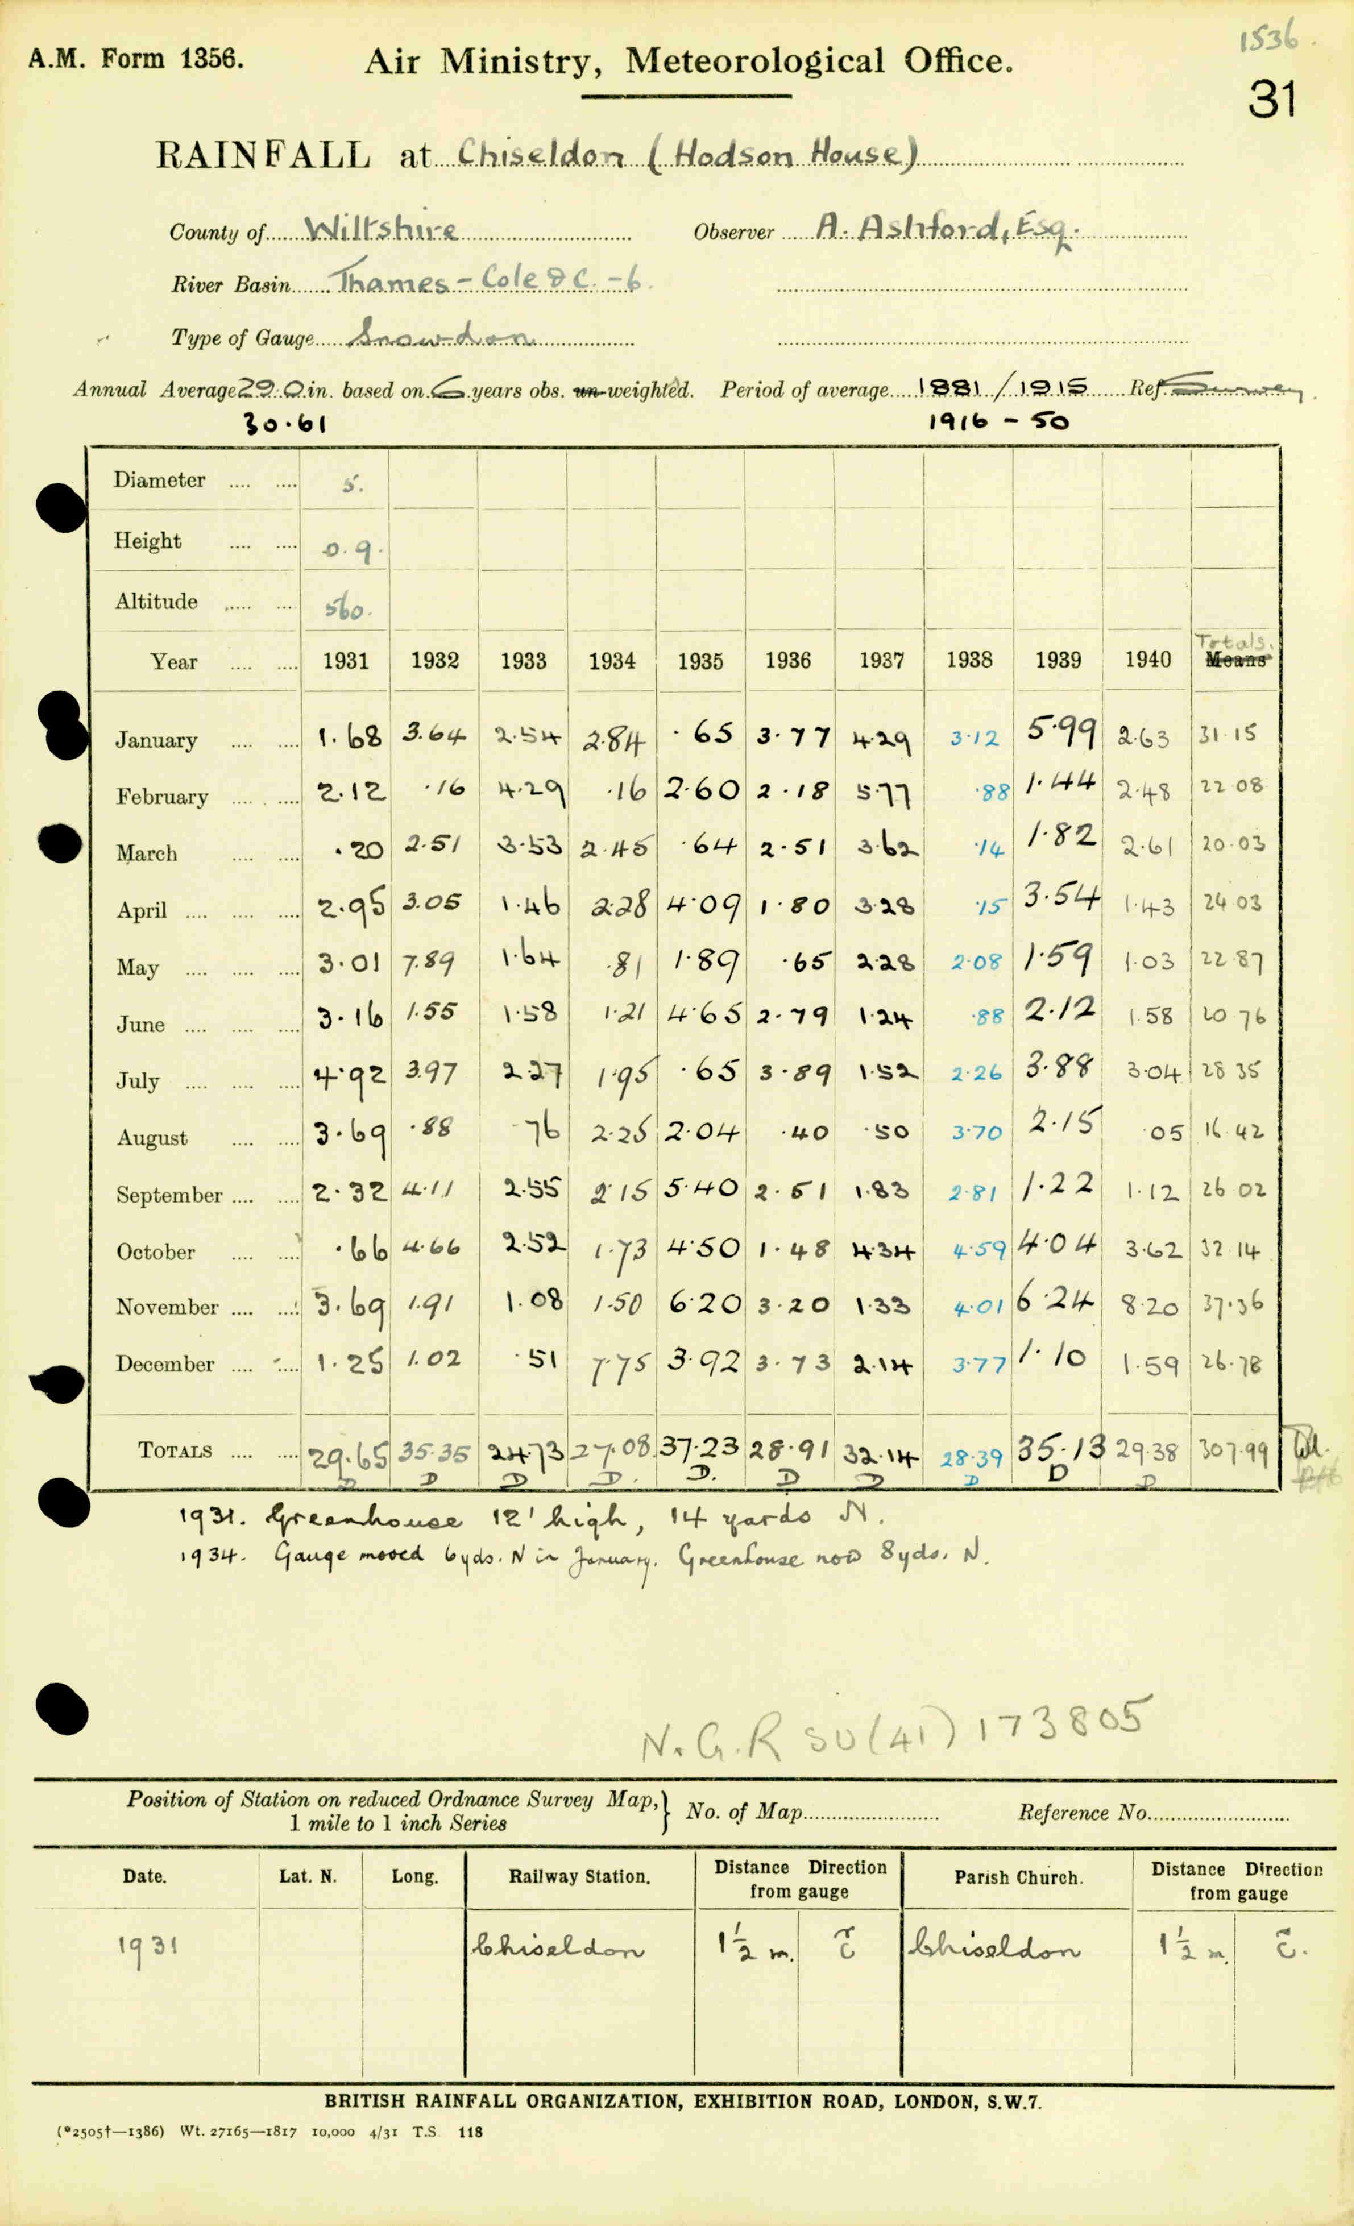 1536.
A.M. Form 1356.
Air Ministry, Meteorological Office.
31
RAINFALL at Chiseldon (Hodson House)
County of Wiltshire Observer A. Ashford, Esq.
River Basin Thames - Cole & C. - 6.
Type of Gauge Snowdon
Annual Average 29.0 in. based on 6 years obs. un-weighted. Period of average 1881/1915 Ref. Survey
30.61 1916 - 50
Diameter .... .... 5.
Height .... .... 0.9.
Altitude .... .... 560.
Totals.
Year .... .... 1931 1932 1933 1934 1935 1936 1937 1938 1939 1940 Means
January .... .... 1.68 3.64 2.54 2.84 .65 3.77 4.29 3.12 5.99 2.63 31.15
February .... .... 2.12 .16 4.29 .16 2.60 2.18 5.77 .88 1.44 2.48 22 08
March .... .... .20 2.51 3.53 2.45 .64 2.51 3.62 .14 1.82 2.61 20.03
April .... .... .... 2.95 3.05 1.46 2.28 4.09 1.80 3.28 .15 3.54 1.43 24 03
May .... .... .... 3.01 7.89 1.64 .81 1.89 .65 2.28 2.08 1.59 1.03 22 87
June .... .... .... 3.16 1.55 1.58 1.21 4.65 2.79 1.24 .88 2.12 1.58 20 76
July .... .... .... 4.92 3.97 2.27 1.95 .65 3.89 1.52 2.26 3.88 3.04 28 35
August .... .... 3.69 .88 .76 2.25 2.04 .40 .50 3.70 2.15 .05 16 42
September .... .... 2.32 4.11 2.55 2.15 5.40 2.51 1.83 2.81 1.22 1.12 26 02
October .... .... .66 4.66 2.52 1.73 4.50 1.48 4.34 4.59 4.04 3.62 32 14
November .... .... 3.69 1.91 1.08 1.50 6.20 3.20 1.33 4.01 6.24 8.20 37.36
December .... .... 1.25 1.02 .51 7.75 3.92 3.73 2.14 3.77 1.10 1.59 26.78
TOTALS .... .... 29.65 35.35 24.73 27.08 37.23 28.91 32.14 28.39 35.13 29.38 307.99
D D D D. D. D D D D D
1931. Greenhouse 12' high, 14 yards N.
1934. Gauge moved 6yds. N in January. Greenhouse now 8yds. N.
N.G.R SU(41)173805
Position of Station on reduced Ordnance Survey Map,} No. of Map Reference No.
1 mile to 1 inch Series
Date. Lat. N. Long. Railway Station. Distance Direction from gauge Parish Church. Distance Direction from gauge
1931 Chiseldon 1½ m. E Chiseldon 1½ m. E.
BRITISH RAINFALL ORGANIZATION, EXHIBITION ROAD, LONDON, S.W.7.
(*2505†—1386) Wt. 27165—1817 10,000 4/31 T.S. 118